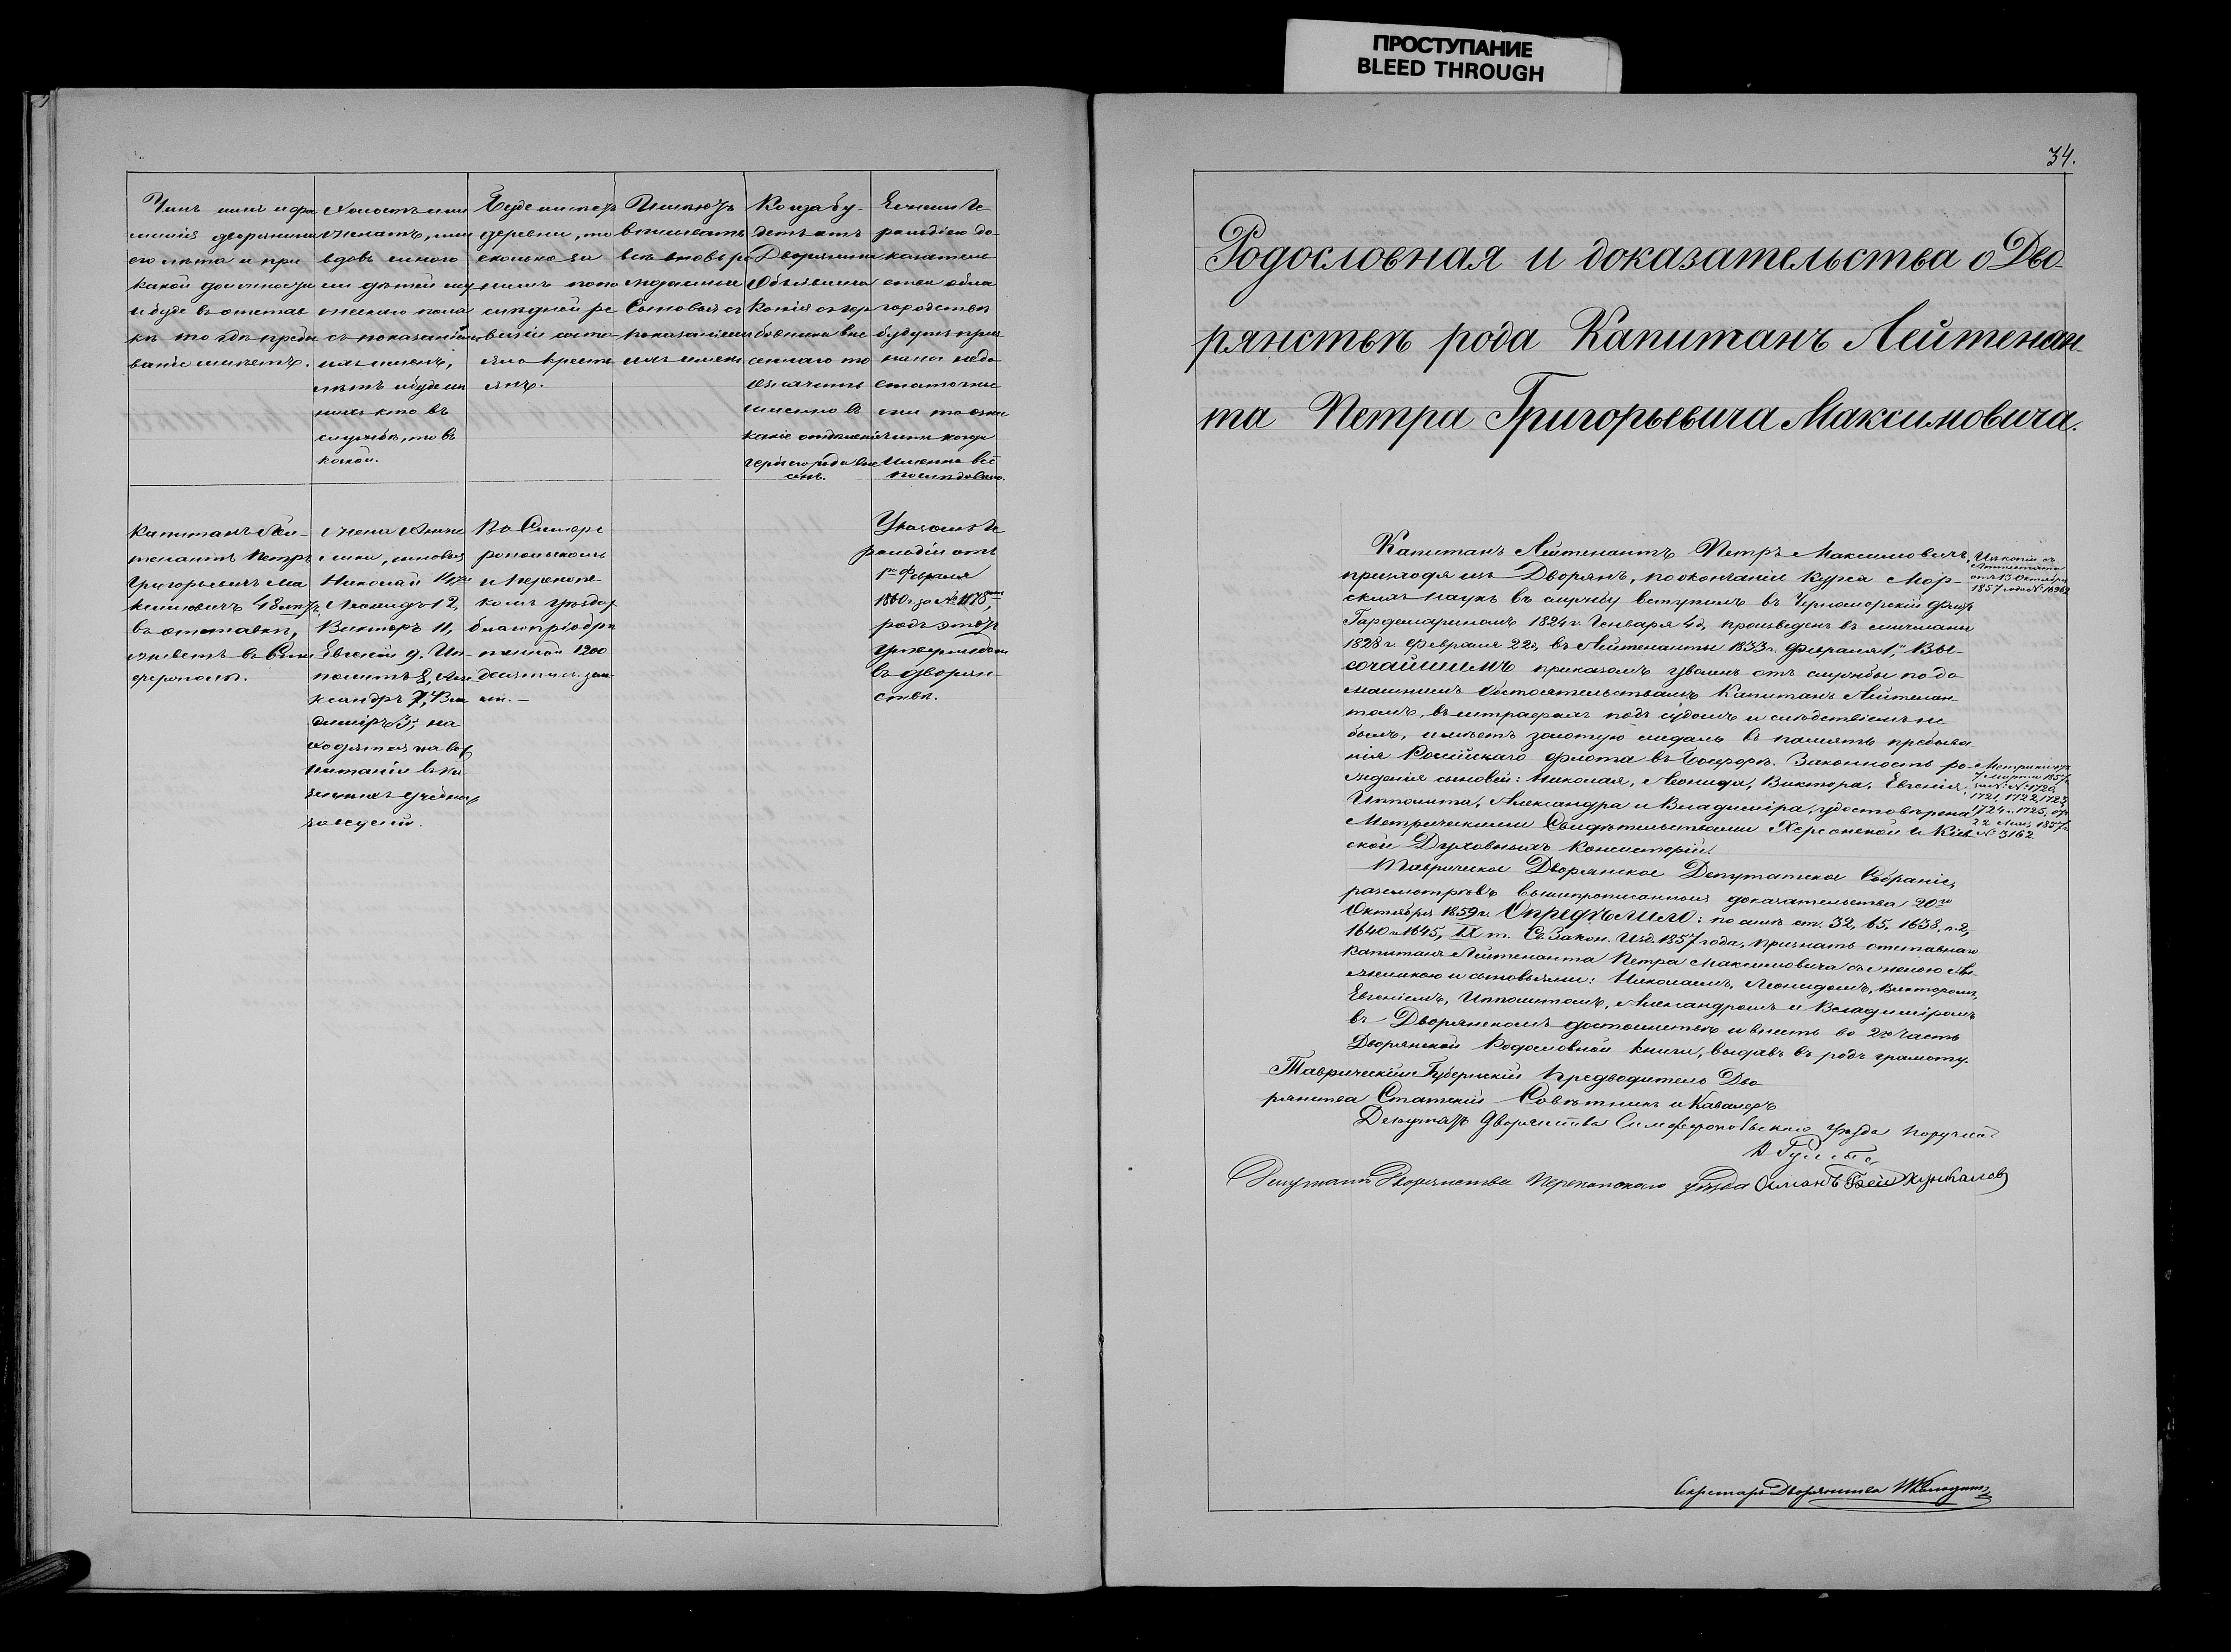 ПРОСТУПАНИЕ
BLEED THROUGH
Чинъ имя и фа
милія дворянина
его лѣта и при
какой должности
и буде въ отстав
кѣ то гдѣ пребы
ваніе имѣетъ.
Холостъ или
женатъ, или
вдовъ и много
ли дѣтей му
жескаго пола
съ показаніемъ
ихъ именъ,
лѣтъ и буде изъ
нихъ кто въ
службѣ, то въ
какой.
Буде имѣетъ
деревни, то
сколько за
нимъ по по
слѣдней ре
визіи состо
яло кресть
янъ.
Имѣютъ
вписывать
всѣ вновь ро
жденные
Сыновья съ
показаніемъ
ихъ именъ
Когда бу-
детъ отъ
Дворянина
Объявлена
Копія съ гер
бовника вне
сеннаго то
означить
именно въ
какіе отдѣленіе
гербъ его рода вне
сенъ.
Если Ге
рольдіею до
казатель
ства о бла
городствѣ
будутъ приз
наны недо
статочны
ми то озна
чить когда
именно всё
послѣдовало.
Капитанъ Лей-
тенантъ Петръ
Григорьевичъ Ма
ксимовичъ 48 лѣтъ,
въ отставкѣ,
живетъ въ Сим
ферополѣ.
Жена Анже
лика, сыновья
Николай 14 ти
Леонидъ 12,
Викторъ 11,
Евгеній 9. Ип-
политъ 8, Але
ксандръ 7, Вла
диміръ 3; на
ходятся на вос
питаніи въ ка
зенныхъ учебныхъ
заведеній.
Въ Симфе
ропольскомъ
и Перекопс-
комъ уѣздах
благопріобрѣ
тенной 1200
десятинъ зем
ли.—
Указомъ Ге
рольдіи отъ
1го Февраля
1860 г. за № 1178,
родъ этотъ
утвержденъ
въ дворян-
ствѣ.
34.
Родословная и доказательства о Дво-
рянствѣ рода Капитанъ Лейтенан-
та Петра Григорьевича Максимовича.
Капитанъ Лейтенантъ Петръ Максимовичъ,
происходя изъ Дворянъ, по окончаніи курса Мор-
скихъ наукъ въ службу вступилъ въ Черноморскій флотъ
Гардемариномъ 1824 г. Генваря 4д, произведенъ въ мичманы
1828 г. Февраля 22д, въ Лейтенанты 1833 г. Февраля 1, Вы-
сочайшимъ приказомъ уволенъ отъ службы по до
машнимъ обстоятельствамъ Капитанъ Лейтенан
томъ, въ штрафахъ подъ судомъ и слѣдствіемъ не
былъ, имѣетъ золотую медаль въ память пребыва-
нія Россійскаго флота въ Босфорѣ. Законность ро-
жденія сыновей: Николая, Леонида, Виктора, Евгенія,
Ипполита, Александра и Владиміра, удостовѣрена
Метрическими Свидѣтельствами Херсонской и Кіев
ской Духовныхъ Консисторій.
Изъ копіи съ
Аттестата
отъ 13 Октября
1857 года № 16962
Метрикіи отъ
7 Марта 1857 г.
за № № 1720,
1721, 1722, 1723,
1724 и 1725, отъ
22 1857 г.
№ 3162
Таврическое Дворянское Депутатское Собраніе,
разсмотрѣвъ вышепрописанныя доказательства 20го
Октября 1859 г. Опредѣлило: по силѣ ст. 32, 65, 1638, п. 2,
1640 и 1645, IX т. Св. Закон. Изд. 1857 года, признать отставнаго
Капитанъ Лейтенанта Петра Максимовича съ женою Ан-
желикою и сыновьями: Николаемъ, Леонидомъ, Викторомъ,
Евгеніемъ, Ипполитомъ, Александромъ и Владиміромъ
въ Дворянскомъ достоинствѣ и внести во 2ю часть
Дворянской Родословной книги, выдавъ въ родъ грамоту.
Таврическій Губернскій Предводитель Дво
рянства Статскій Совѣтникъ и Кавалеръ
Депутатъ Дворянства Симферопольскаго уѣзда Поручикъ
Депутатъ Дворянства Перекопскаго уѣзда Османъ Бей
Секретарь Дворянства